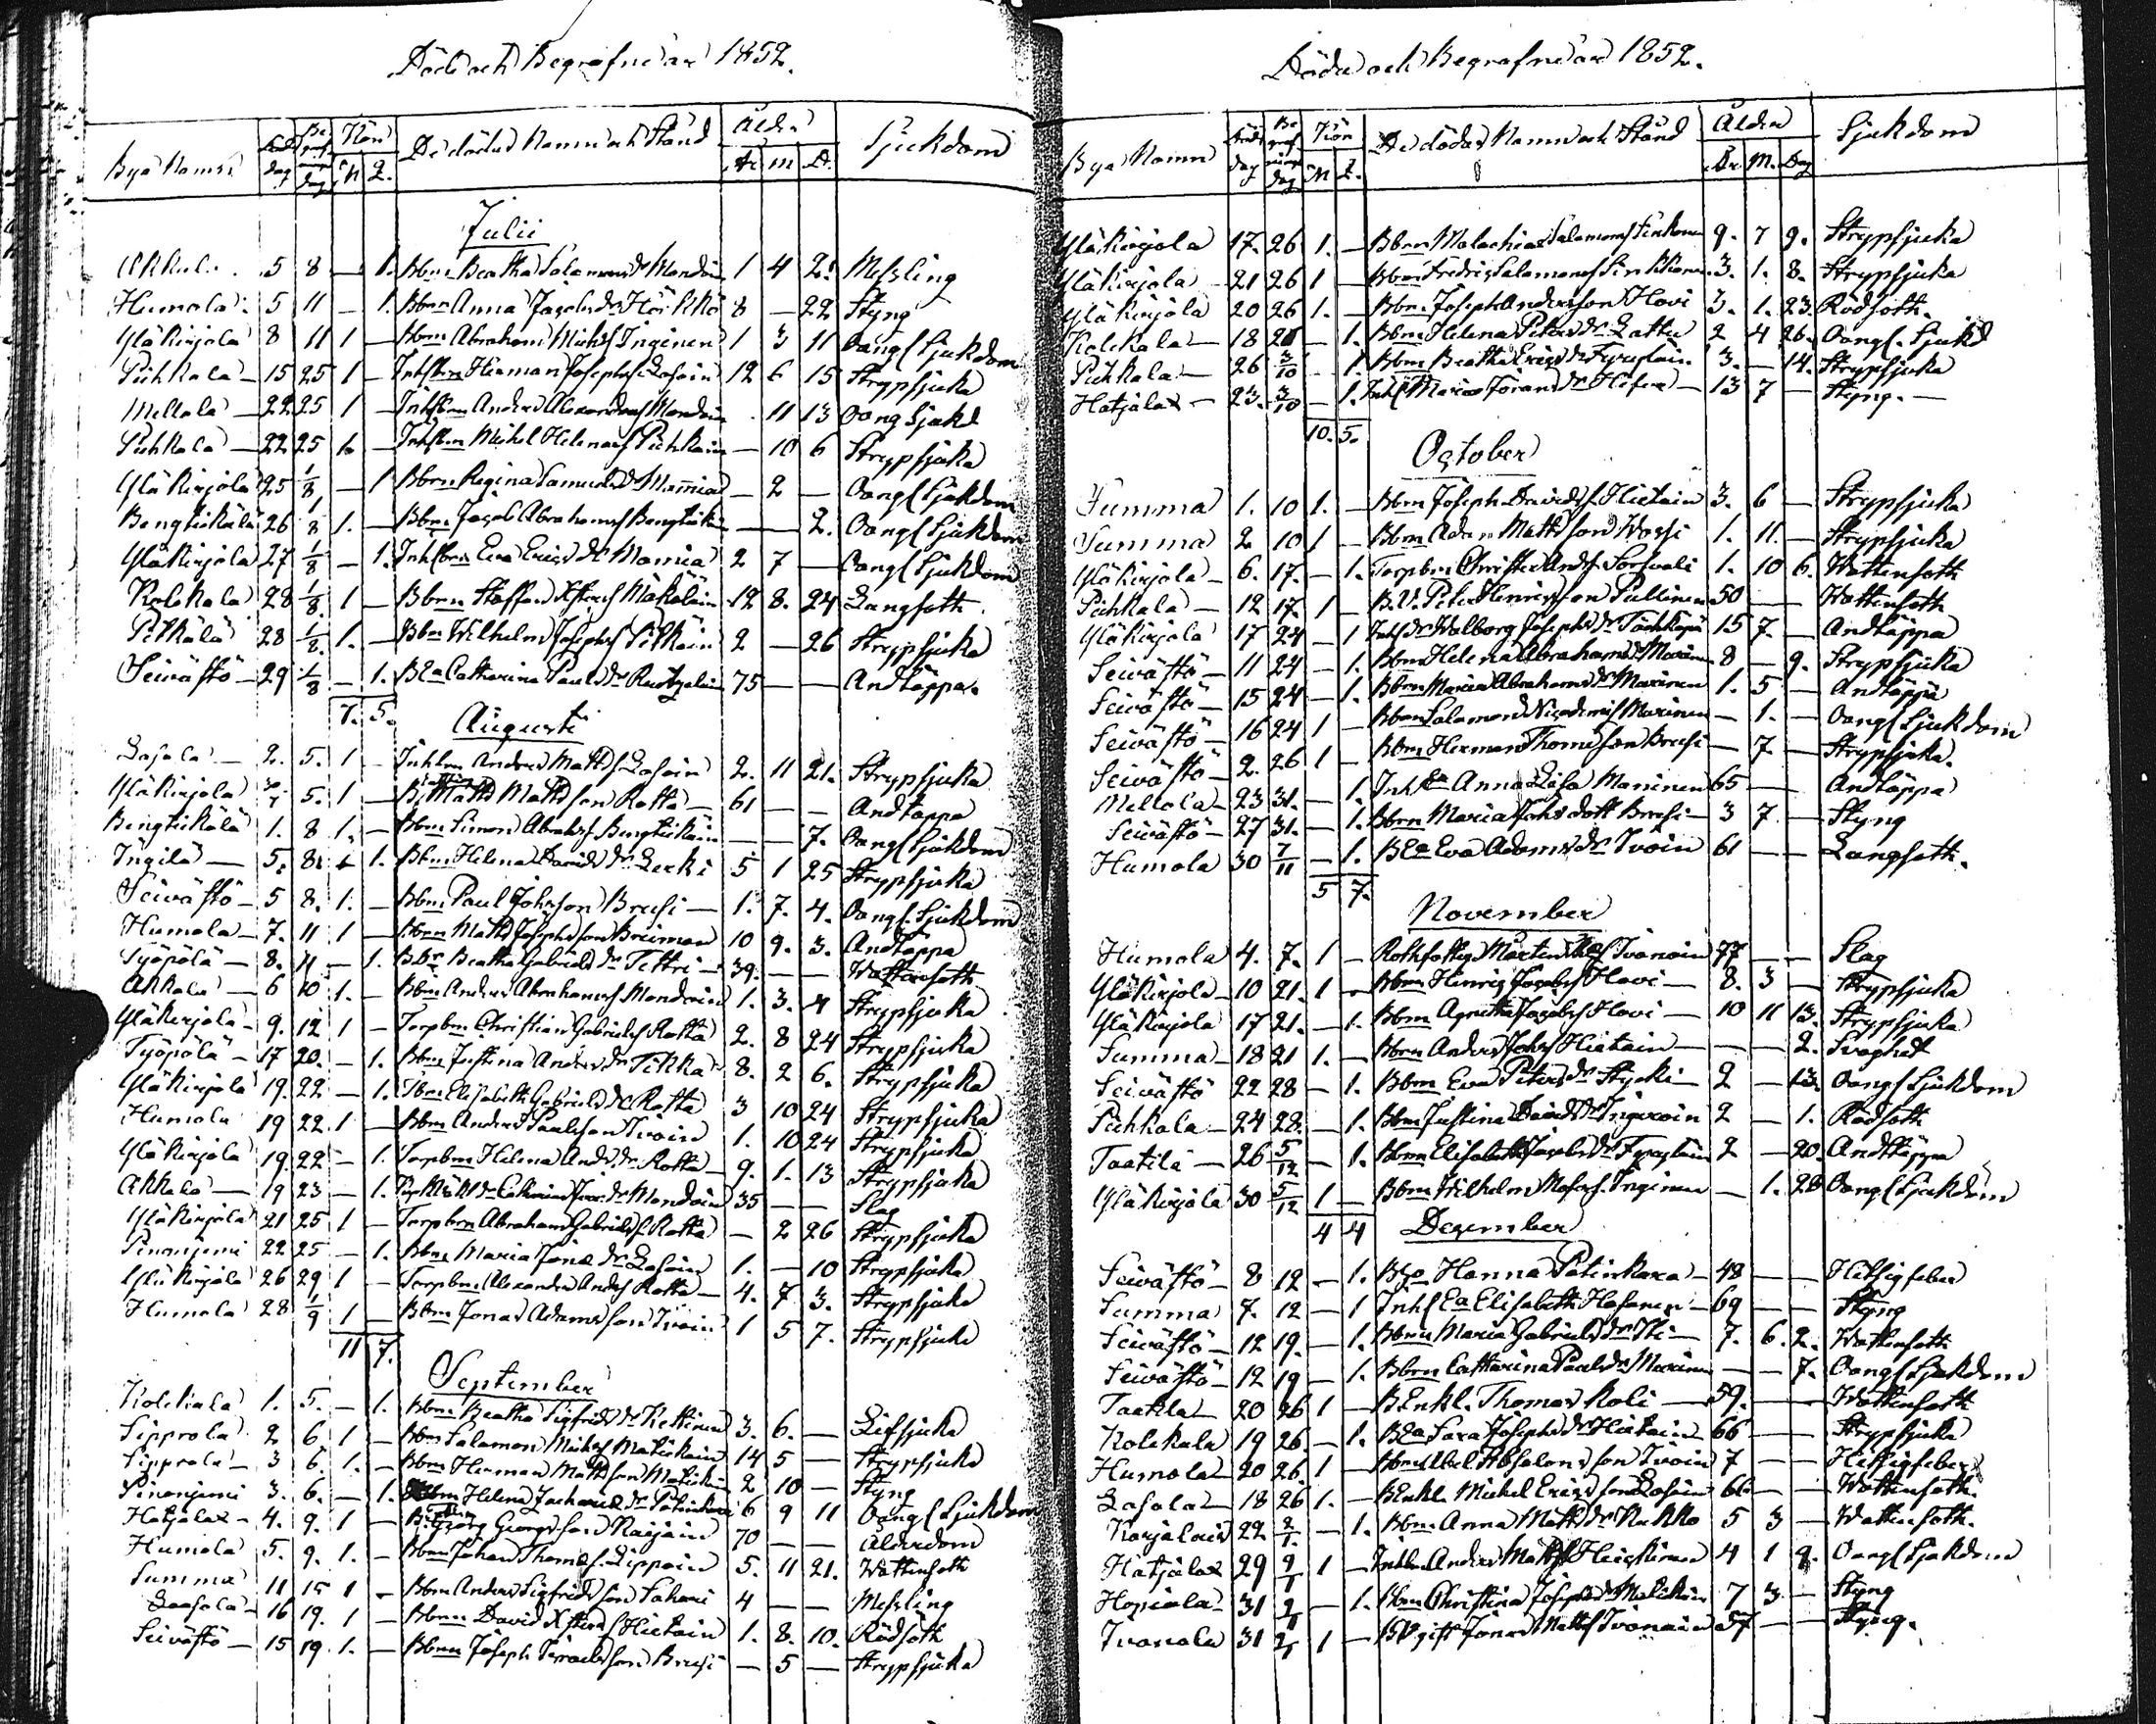 Döde och Begrafne år 1852.
Bya Namn Döds dag Begrafnings dag Kön M Q. De dödas Namn och Stånd Ålder År M D. Sjukdom
Julii
Akkala 5 8 — 1. Bbrn Beatha Salamonsdr Mondoin 1 4 2. Messling
Humola 5 11 — 1. Bbrn Anna Jacobsdr Hörkkö 8 — 22 Styng
Yläkirjola 8 11 1 — Bbrn Abraham Michelss Inginen 1 3 11 Oangf Sjukdom
Pihkala — 15 25 1 — Inhsbrn Herman Josephss Losoin 12 6 15 Strypsjuka
Mellola — 22 25 1 — Inhsbrn Anders Alexanderss Mondoin . 11 13 Oang Sjukd
Pihkala — 22 25 1. — Inhsbrn Michel Helenass Pihkain — 10 6 Strypsjuka
Yläkirjola 25 1/8 — 1 Bbrn Regina Samuelsdr Mamia — 2 — Oangf Sjukdom
Bengtickälä 26 1/8 1. — Bbrn Jacob Abrahamss Bengtickäin — — 2. Oangf Sjukdom
Yläkirjola 27 1/8 — 1. Inhsbrn Eva Ericsdr Mamia 2 7 — Oangf Sjukdom
Kolckala 28 1/8 1 — Bbrn Staffan Kristerss Mäkäläin 12 8. 24 Langsoth
Pitkälä 28 1/8 1. — Bbrn Wilhelm Josephss Pitkäin 2 — 26 Strypsjuka
Seivästö — 29 1/8 — 1. BEa Catharina Paulsdr Ruotzalain 75 — — Andtäppa.
7. 5.
Augusti
Lasola — 2. 5. 1 — Inhbrn Anders Mattss Losoin 2. 11 21. Strypsjuka
Yläkirjola 30/7 5. 1 — Matts Mattsson Rotta — 61 — — Andtäppa
Bengtickälä 1. 8 1. — Bbrn Simon Abrahss Bengtickäin — — 7. Oangf Sjukdom
Ingilä — 5. 8. — 1. Bbrn Helena Davidsdr Lerki 5 1 25 Strypsjuka
Seivästö — 5 8. 1. — Bbrn Paul Johnson Brusi — 1. 7. 4. Oangf. Sjukdom
Humola — 7. 11 1 — Bbrn Matts Josephsson Breiman 10 9. 3. Andtäppa
Työpölä — 8. 11 — 1. Bbr Beatha Gabrielsdr Tettri — 39. — — Wattensoth
Akkala — 6 10 1. — Bbrn Anders Abrahamss Mondoin 1. 3. 4 Strypsjuka
Yläkirjola — 9. 12 1 — Torpbrn Christian Gabrielss Rotta 2. 8 24 Strypsjuka
Työpölä — 17 20. — 1. Bbrn Justina Andersdr Tikka 8. 2 6. Strypsjuka
Yläkirjola 19. 22 — 1. Tbrn Elisabeth Gabrielsdr Rotta 3 10 24 Strypsjuka
Humola 19 22. 1 — Bbrn Anders Paulsson Tvoin 1. 10 24 Strypsjuka
Yläkirjola 19. 22 — 1. Torpbrn Helena Andsdr Rotta — 9. 1. 13 Strypsjuka
Akkala — 19 23 — 1. Catharina Mondoin 35 — — Slag
Yläkirjola 21 25 1 — Torpbrn Abraham Gabrielss Rotta — 2 26 Strypsjuka
Pinonjemi 22 25 — 1. Bbrn Maria Jonasdr Losoin 1. — 10 Strypsjuka
Yläkirjola 26 29 1 — Torpbrn Alexander Anderss Rotta — 4. 7 3. Strypsjuka
Humola 28 1/9 1 — Bbrn Jonas Adamsson Tvoin 1 5 7. Strypsjuka
11 7.
September
Kolckala 1. 5. — 1. Bbrn Beatha Sigfridsdr Kettinen 3. 6. — Lifsjuka
Sipprola 2 6 1 — Bbrn Salamon Michelss Matickain 14 5 — Strypsjuka
Sipprola — 3 6. 1. — Bbrn Herman Mattsson Matickain 2 10 — Styng
Pinonjemi 3. 6. — 1. Bbrn Helena Zachariasdr Patinkara 6 9 11 Oangf Sjukdom
Hatjalax — 4. 9. 1 — Georg Georgsson Raijain 70 — — Ålderdom
Humola 5. 9. 1. — Bbrn Johan Thomass. Lippoin 5. 11 21. Wattensoth
Summa 11 15 1 — Bbrn Anders Sigfridsson Sahari 4 — — Messling
Loosola — 16 19. 1 — Bbrn David Kristerss Hietain 1. 8. 10. Rödsoth
Seivästö — 15 19 1. — Bbrn Joseph Simonsson Brusi — 5 — Strypsjuka
Döde och Begrafne år 1852.
Bya Namn Döds dag Begrafnings dag Kön M Q. De dödas Namn och Stånd Ålder År. M. Dag Sjukdom
Yläkirjola 17. 26 1. — Bbrn Malachias Salamonss Sinkonen 9. 7 9. Strypsjuka
Yläkirjola — 21 26 1 — Bbrn Fredric Salamonss Sinkkonen 3. 1. 8. Strypsjuka
Yläkirjola 20 26 1. — Bbrn Joseph Andersson Hovi 3. 1. 23. Rödsoth.
Kolckala — 18 26 — 1. Bbrn Helena Petersdr Lattu 2 4 26. Oangf. Sjukd
Pihkala — 26 3/10 — 1. Bbrn Beatha Ericsdr Fyrqvain 3. — 14. Strypsjuka
Hatjalax — 23. 3/10 — 1. Inhs Maria Göransdr Häfer — 13 7 — Styng. —
10. 5.
October
Summa 1. 10 1. — Bbrn Joseph Davidss Hietain 3. 6 — Strypsjuka
Summa 2 10 1 — Bbrn Adam Mattsson Wossi 1. 11. — Strypsjuka
Yläkirjola — 6. 17. — 1. Torpbrn Christina Andss Sorvali 1. 10 6. Wattensoth
Pihkala — 12 17. 1 — B.U. Peter Henricsson Pullinen 50 — — Wattensoth
Yläkirjola 17 24 — 1 Inhsdr Walborg Josephsdr Törkäpä 15 7. — Andtäppa
Seivästö — 11 24 — 1. Bbrn Helena Abrahamsdr Morinen 8 — 9. Strypsjuka
Seivästö — 15 24 — 1. Bbrn Maria Abrahamsdr Marinen 1. 5 — Andtäppa
Seivästö — 16 24 1 — Bbrn Salamon Nicodemuss Marinen — 1. — Oangf Sjukdom
Seivästö — 2. 26 1 — Bbrn Herman Thomasson Brusi — 7. — Strypsjuka.
Mellola — 23 31. — 1. InhEa Anna Lisa Maninen 65 — — Andtäppa
Seivästö — 27 31. — 1. Bbrn Maria Johsdott Brusi — 3 7 — Styng
Humola 30 7/11 — 1. BEa Eva Adamsdr Tvoin 61 — — Langsoth.
5 7.
November
Humola 4. 7. 1 — Rothfattig Mårten Tvanoin 77 — — Slag
Yläkirjola — 10 21. 1 — Bbrn Henric Jacobss Hovi — 8. 3 — Strypsjuka
Yläkirjola 17 21. — 1. Bbrn Agnetha Jacobss Hovi — 10 11 13. Strypsjuka
Summa — 18 21 1. — Bbrn Anders Johss Hietain — — — 2. Svaghet
Seivästö 22 28 — 1. Bbrn Eva Petersdr Stycki — 2 — 13. Oangf Sjukdom
Pihkala — 24 28. — 1. Bbrn Justina Davidsdr Ingvoin 2 — 1. Rödsoth
Taatila — 26 5/12 — 1. Bbrn Elisabeth Jacobsdr Fyrqvain 2 — 20. Andtäppa
Yläkirjola 30 5/12 1 — Bbrn Wilhelm Mosess. Inginen — 1. 28 Oangf Sjukdom
4 4
Dezember
Seivästö — 8 12 — 1. Hanna Patinkara — 48 — — Hetsigfeber
Summa 7. 12 — 1 Inhs Ea Elisabeth Hosanen — 69 — — Styng
Seivästö — 12 19. — 1. Bbrn Maria Gabrielsdr Thi — 7. 6. 2. Wattensoth
Seivästö — 12 19 — 1. Bbrn Catharina Paulsdr Marinen — — 7. Oangf Sjukdom
Taatila — 20 26 1 — B.Enkl. Thomas Koli — 59. — — Wattensoth
Kolckala 19 26. — 1. BEa Sara Josephsdr Hietain 66 — — Strypsjuka
Humola — 20 26. 1 — Bbrn Abel Absalonsson Tvoin 7 — — Hetsigfeber
Lasola — 18 26 1. — BEnkl. Michel Ericsson Losoin 66 — — Wattensoth.
Karjalais 22 2/1. — 1. Bbrn Anna Mattsdr Kukko 5 3 — Wattensoth.
Hatjalax 29 2/1 1 — Inhbrn Anders Mattss Heickinen 4 1 9. Oangf Sjukdom
Hopiala — 31 2/1 — 1. Bbrn Christina Josephsdr Matickain 7 3 — Styng
Ivanala 31 2/1 1 — gift Jonas Mattss Ivanain 57 — — Styng.